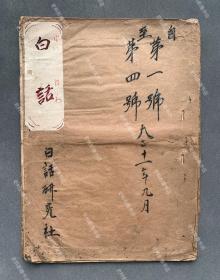 自第一號
至第四號
大正十一年九月
白話
白話研究社